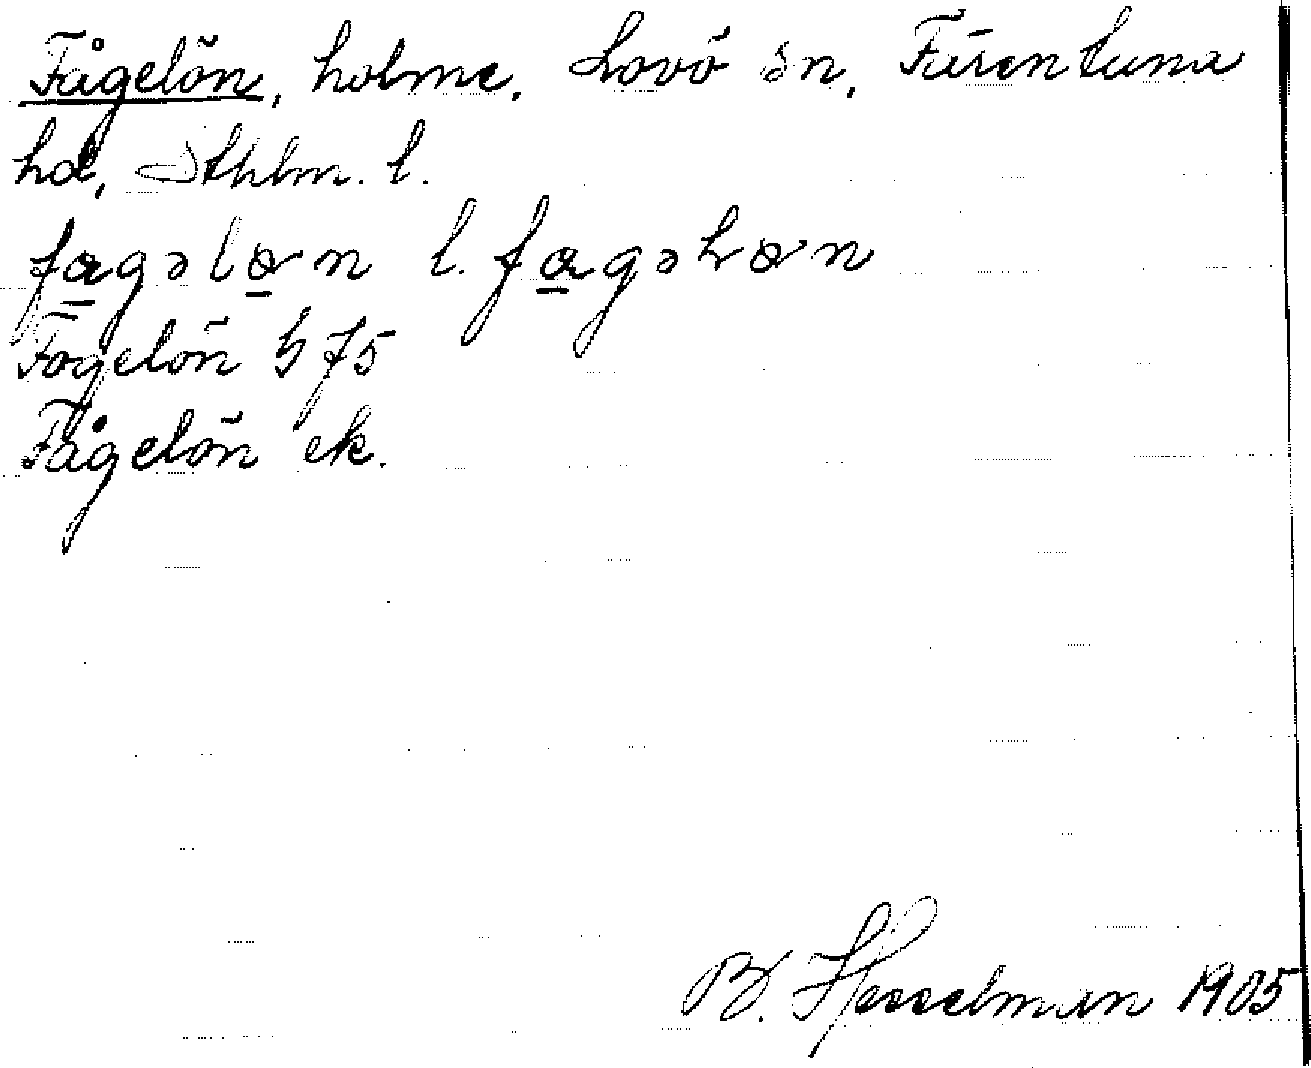 Fågelön, holme, Lovö sn, Färentuna
hd, Sthlm. l.
fagəlön l. fagəlön
Fogelön h 75
Fågelön ek.
B. Hesselman 1905